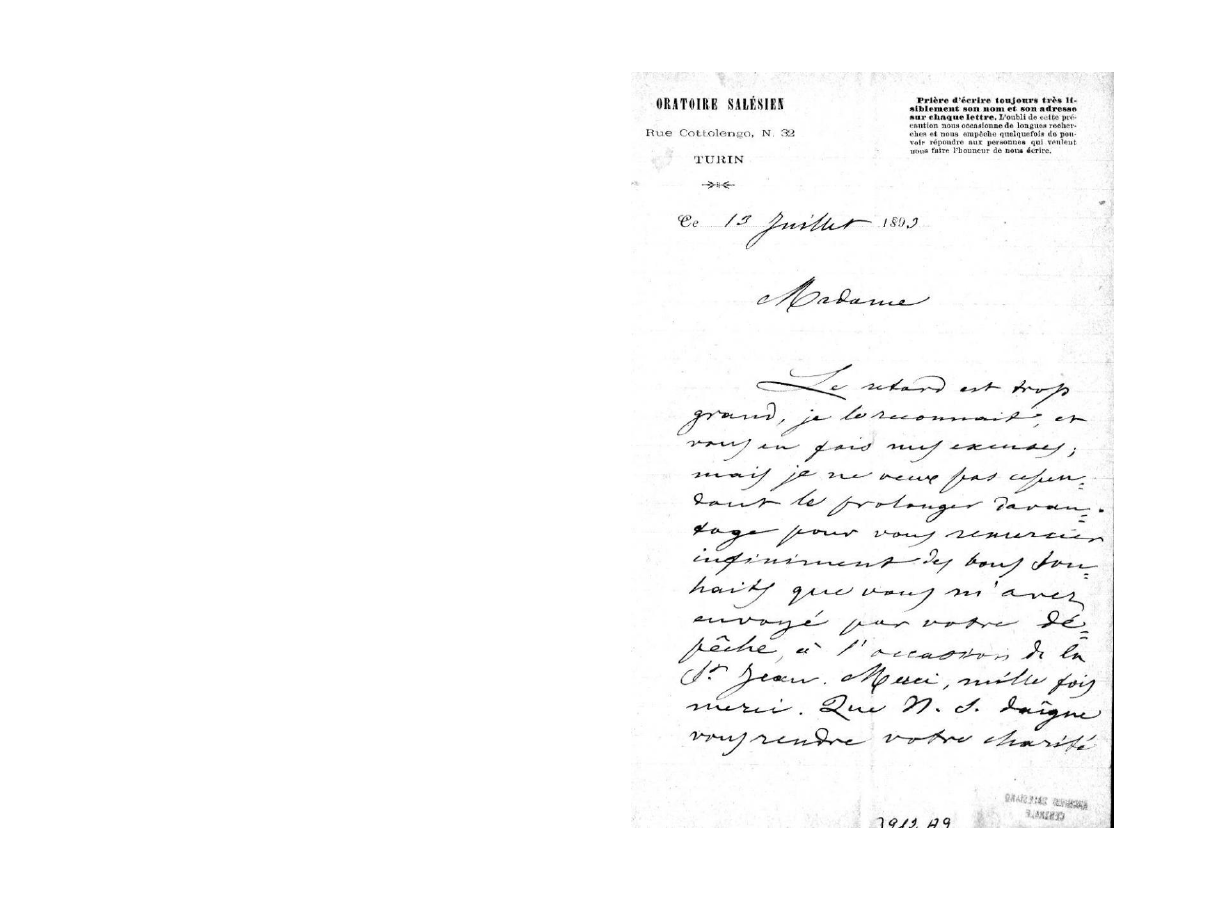 ORATOIRE SALÉSIEN
Rue Cottolengo, N. 32
TURIN
Prière d'écrire toujours très li-
siblement son nom et son adresse
sur chaque lettre. L'oubli de cette pré-
caution nous occasionne de longues recher-
ches et nous empêche quelquefois de pou-
voir répondre aux personnes qui veulent
nous faire l'honneur de nous écrire.
Ce 13 Juillet 1893
Madame
Le retard est trop
grand, je le reconnait, et
vous en fais mes excuses;
mais je ne veux pas cepen=
dant le prolonger davan=
tage pour vous remercier
infiniment des bons sou=
haits que vous m'avez
envoyé par votre dé=
pêche, à l'occasion de la
St Jean. Merci, mille fois
merci. Que N. S. daigne
vous rendre votre charité
CENTRALE